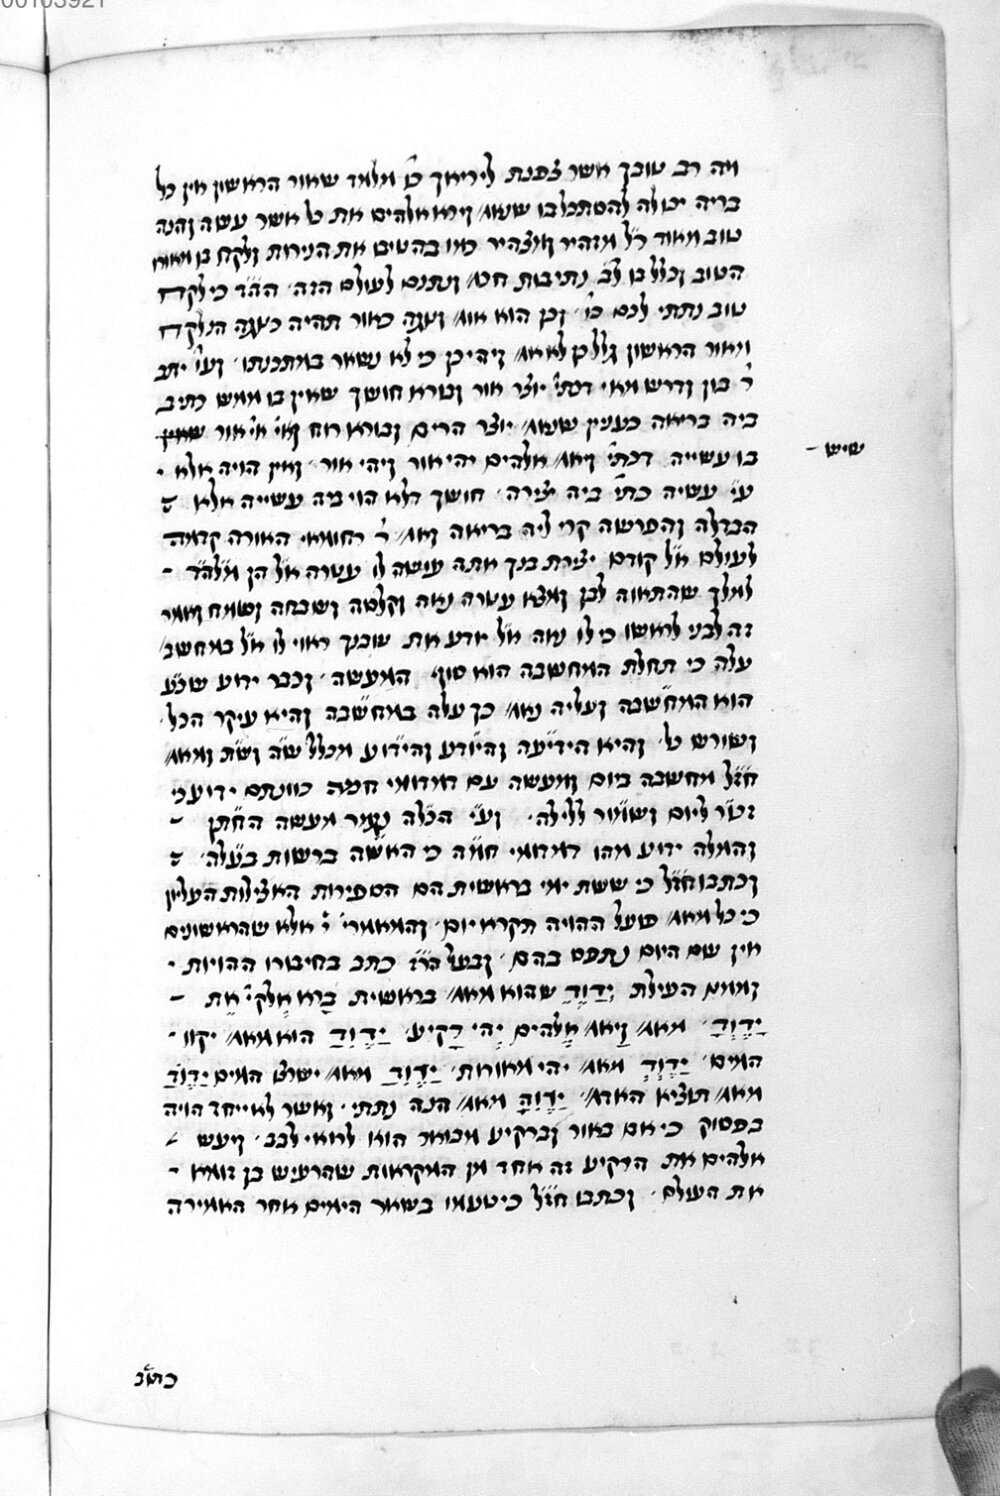 מה רב טובך אשר צפנת ליריאך כו' מלמד שאור הראשון אין כל
בריה יכולה להסתכל בו שנאמ' וירא אלהים את כל אשר עשה והנה
טוב מאוד ר"ל מזהיר ומצהיר כמו בהטיבו את הנירות ולקח בו מאורו
הטוב וכלל בו ל"ב נתיבות חכמ' ונתנם לעולם הזה הה"ד כי לקח
טוב נתתי לכם כו' וכן הוא אומ' ונוגה כאור תהיה כנוגה הנלקח
מאור הראשון ולא אמ' ויהי כן כי לא נשאר במתכנתו ועו' יתב
ר' בון ודרש מאי דכתי' יוצר אור ובורא חושך שאין בו ממש כתיב
ביה בריאה כענין שנאמ' יוצר הרים ובורא רוח אור
שיש -
בו עשייה דכתי' ויאמ' אלהים יהי אור ויהי אור ואין הויה אלא
ע"י עשיה כתי' ביה יצירה חושך דלא הוי ביה עשייה אלא
הבדלה והפרשה קרי ליה בריאה ואמ' ר' רחומאי האורה קדמה
לעולם א"ל קודם יצירת בנך אתה עושה לו עטרה א"ל הן
למלך שהתאוה לבן ומצא עטרה נאה וקלסה ושבחה ושמח ואמר
זה לבני לראשו כי לו נאה א"ל יודע את שבנך ראוי לו א"ל במחשב'
עלה כי תחלת המחשבה הוא סוף המעשה וכבר ידוע
הוא המחשבה ועליה נאמ' כך עלה במחשבה והיא עיקר הכל
ושורש כל והיא הידיעה והיודע והידוע
חז"ל מחשבה ביום ומעשה עם דמדומי חמה כוונתם ידוע כי
ליום ושומר ללילה וע"י הכלה נגמר מעשה החתן
והמלה ידוע מהו דמדומי חמה כי האשה ברשות בעלה
וכתבו חז"ל כי ששת ימי בראשית הם הספירות האצילות העליון
כי כל מאמ' פועל ההויה תקרא יום והמאמרי' י' אלא שהראשונים
אין שם היום נתפס בהם ובעל כתב בחיבורו ההויות
העילת ידוד שהוא מאמ' בראשית ברא אלקי' את
ידוד מאמ' ויאמ' אלהים יהי רקיע ידוד הוא מאמ' יקוו
המים ידוד מאמ' יהי מאורות ידוד מאמ' ישרצו המים ידוד
מאמ' תוציא האדמ' ידוד מאמ' הנה נתתי ואשר לא ייחד הויה
בפסוק כי אם באור וברקיע מבואר הוא לרואי לבב ויעש
אלהים את הרקיע זה אחד מן המקראות שהרעיש בן זומא
את העולם וכתבו חז"ל כי טעמו בשאר הימים אחר האמירה